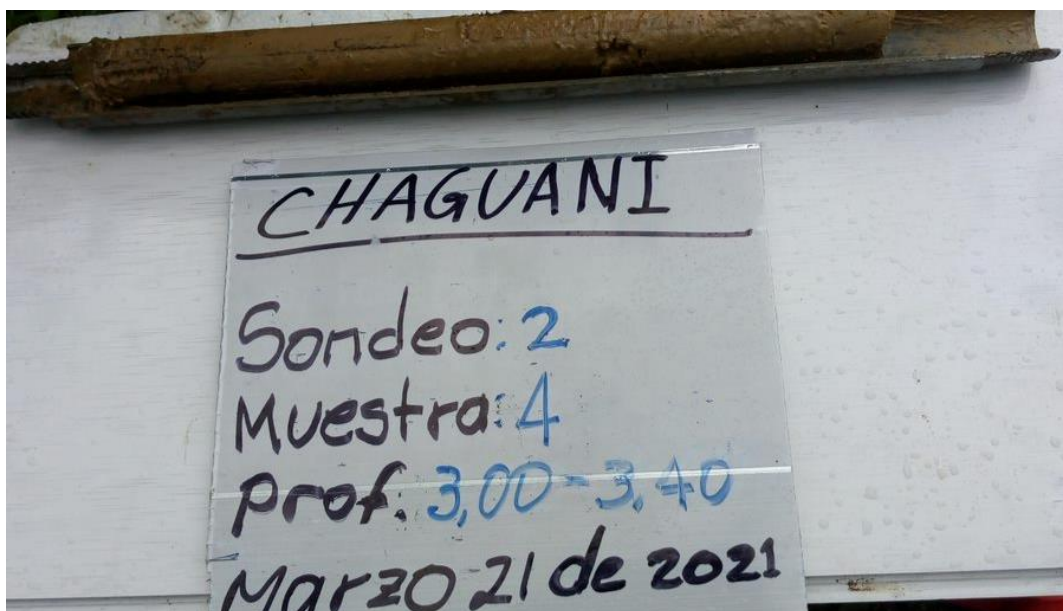 CHAGUANI
Sondeo: 2
Muestra: 4
Prof. 3,00 - 3,40
Marzo 21 de 2021